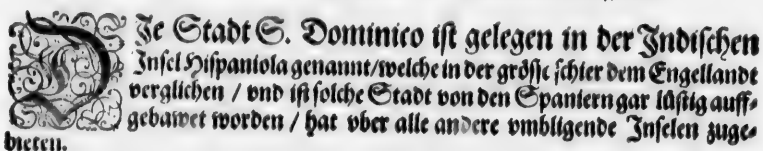 DJe Stadt S. Dominico ist gelegen in der Jndischen
Jnsel Hispaniola genannt/welche in der grösse schier dem Engellandt
verglichen / vnd ist solche Stadt von den Spaniern gar lüstig auff-
gebawet worden / hat vber alle andere vmbligende Jnselen zuge-
bieten.